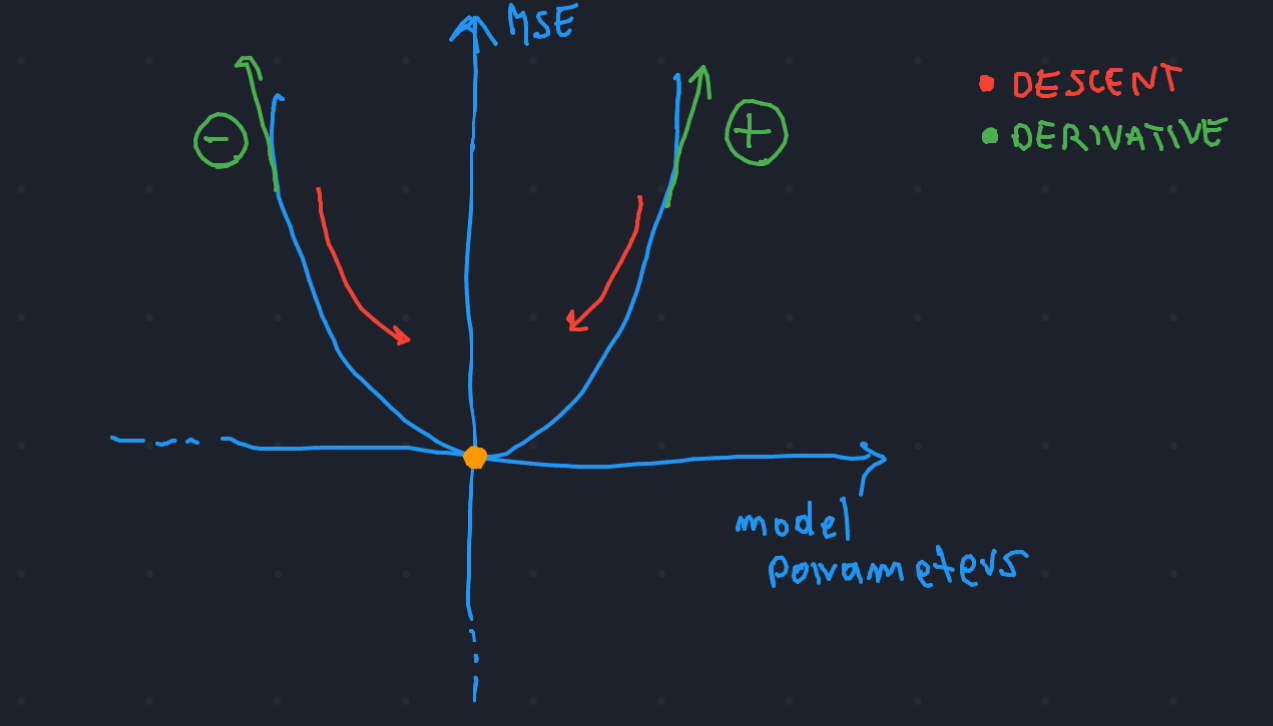 MSE
DESCENT
DERIVATIVE
-
+
model
parameters